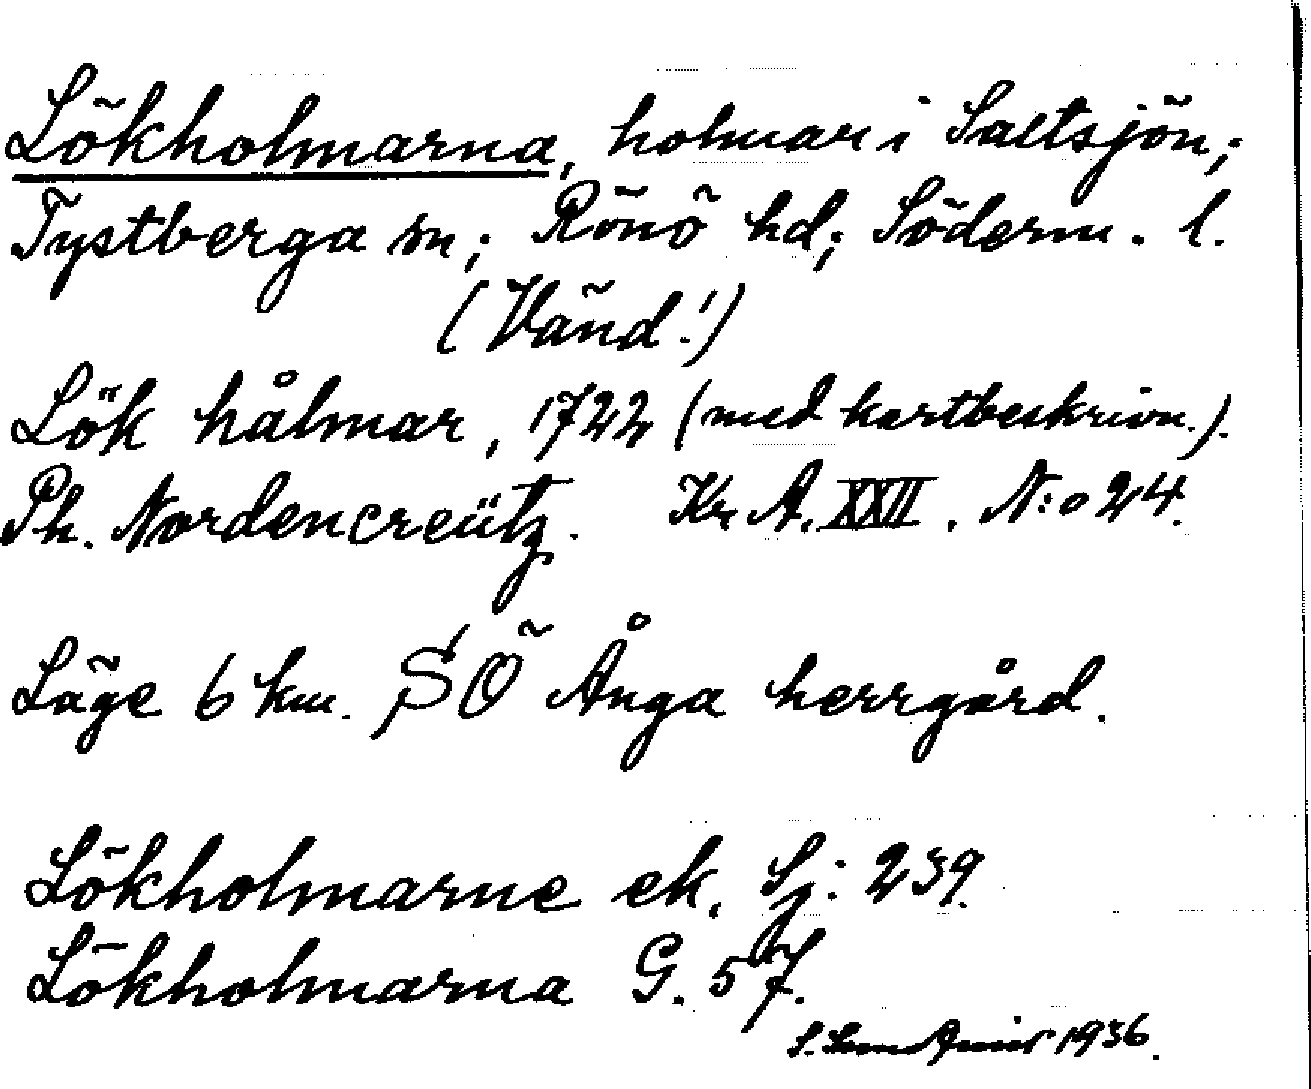 Lökholmarna, holmar i Saltsjön;
Tystberga sn; Rönö hd; Söderm. l.
(Vänd!)
Lök hålmar, 1722 (med kartbeskrivn.).
Ph. Nordencreütz. Kr. A. XXII. N:o 24.
Läge 6 km. SÖ Ånga herrgård.
Lökholmarne ek. Sj: 239.
Lökholmarna G. 57.
1936.